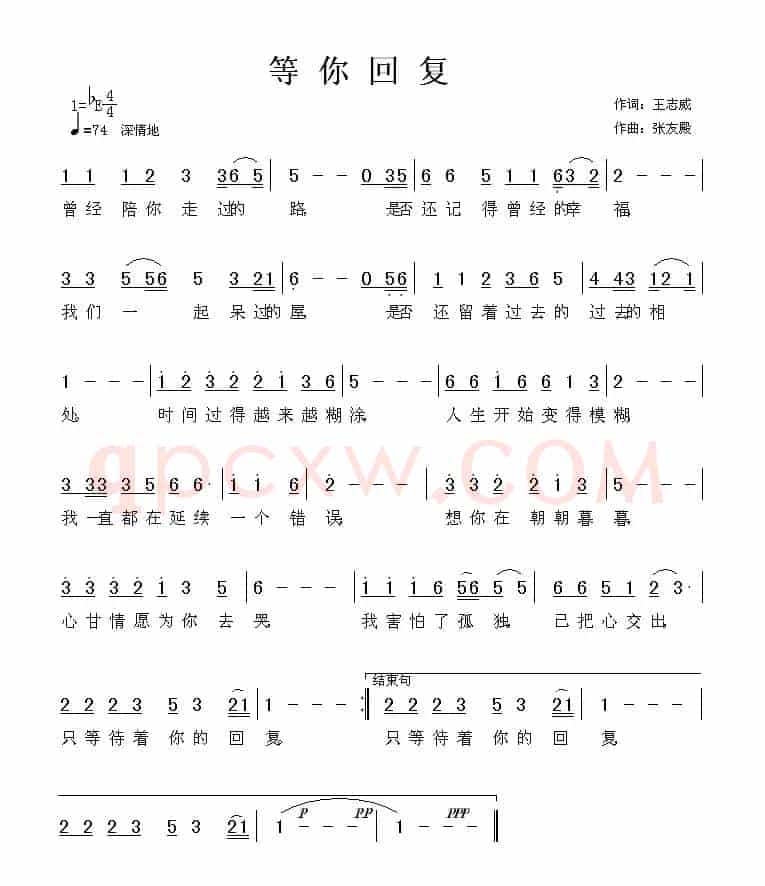 等你回复
1=♭E 4/4
作词：王志威
♩=74 深情地
作曲：张友殿
1 1 1 2 3 3 6 5 | 5 - - 0 3 5 | 6 6 5 1 1 6 3 2 | 2 - - - |
曾经 陪你 走 过的 路 是否 还记 得曾经的幸 福
3 3 5 5 6 5 3 2 1 | 6 - - 0 5 6 | 1 1 2 3 6 5 | 4 4 3 1 2 1 |
我们 一 起 呆过的 屋 是否 还留着过去的 过去的相
1 - - - | 1 2 3 2 2 1 3 6 | 5 - - | 6 6 1 6 1 1 3 3 | 2 - - - |
处 时间过得越来越糊涂 人生开始变得模糊
3 3 3 3 5 6 6 · | 1 1 6 | 2 - - - | 3 3 2 2 1 5 | 3 - - - |
我一直都在延续 一个 错误 想你在 朝朝暮暮
3 3 3 2 1 3 5 | 6 - - - | 1 1 1 6 5 6 5 5 | 6 6 5 1 2 3 · |
心甘情愿为你 去 哭 我害怕了孤独 已把心交出
结束句
2 2 2 3 5 3 2 1 | 1 - - - :‖ 2 2 2 3 5 3 2 1 | 1 - - - |
只等待着 你的 回 复 只等待着 你的 回 复
2 2 2 3 5 3 2 1 | 1 - - - | 1 - - - ‖
p pp ppp
qpcxw.COM